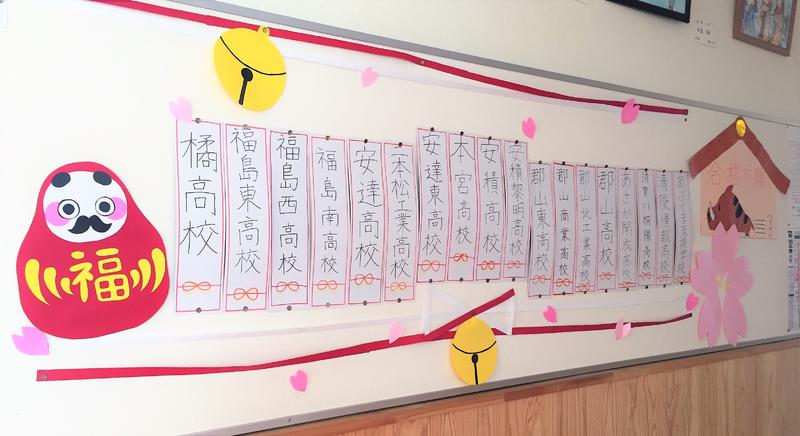 福
橘高校
福島東高校
福島西高校
福島南高校
安達高校
二本松工業高校
安達東高校
本宮高校
安積高校
安積黎明高校
郡山東高校
郡山商業高校
郡山北工業高校
郡山高校
あさか開成高校
須賀川桐陽高校
清陵情報高校
あぶくま支援学校
合格祈願